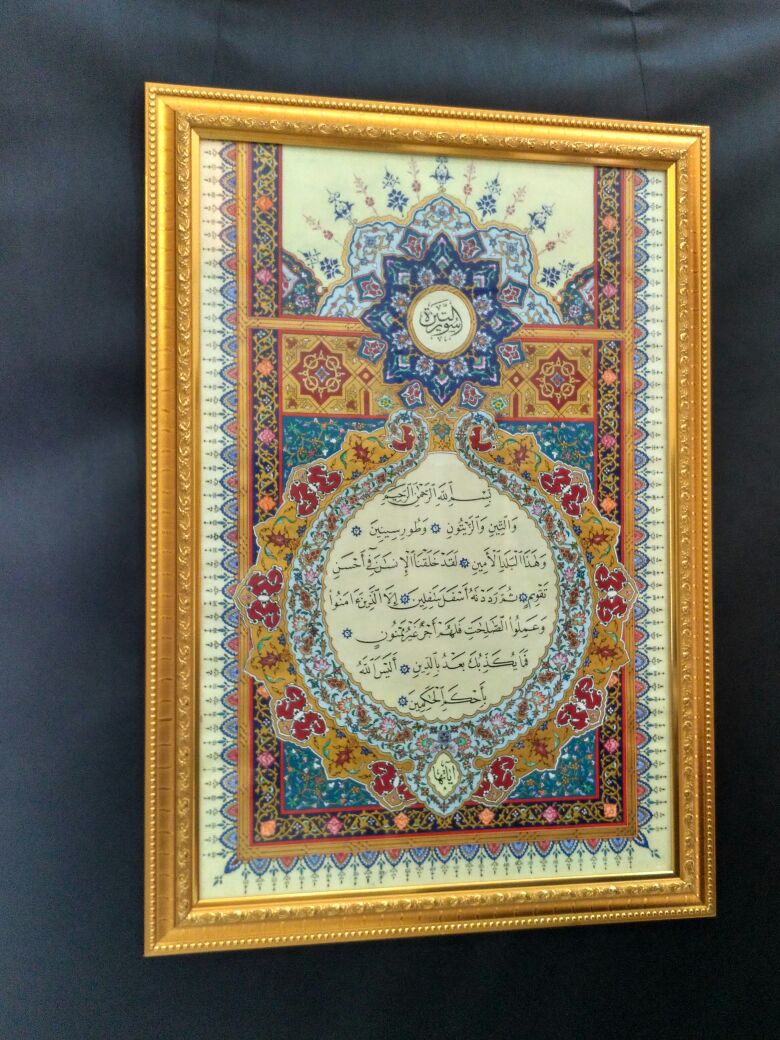 سورة التين
بِسْمِ اللَّهِ الرَّحْمَٰنِ الرَّحِيمِ
وَالتِّينِ وَالزَّيْتُونِ ۞ وَطُورِ سِينِينَ ۞
وَهَٰذَا الْبَلَدِ الْأَمِينِ ۞ لَقَدْ خَلَقْنَا الْإِنسَانَ فِي أَحْسَنِ
تَقْوِيمٍ ۞ ثُمَّ رَدَدْنَٰهُ أَسْفَلَ سَٰفِلِينَ ۞ إِلَّا الَّذِينَ ءَامَنُوا
وَعَمِلُوا الصَّٰلِحَٰتِ فَلَهُمْ أَجْرٌ غَيْرُ مَمْنُونٍ ۞
فَمَا يُكَذِّبُكَ بَعْدُ بِالدِّينِ ۞ أَلَيْسَ اللَّهُ
بِأَحْكَمِ الْحَٰكِمِينَ ۞